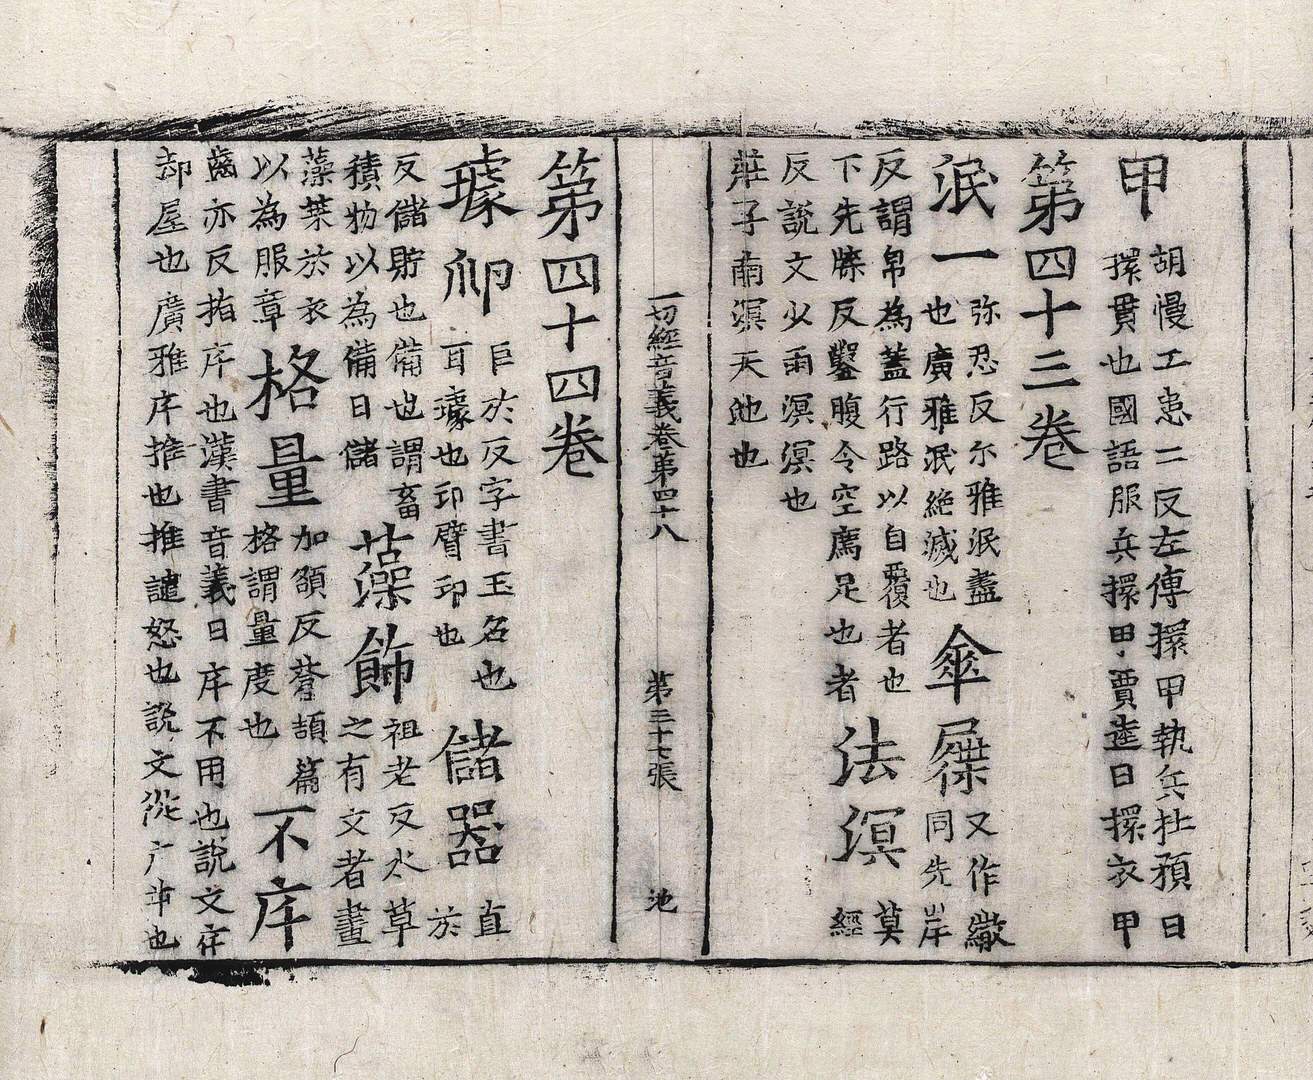 甲
胡慢工患二反左傳擐甲執兵杜預曰
擐貫也國語服兵擐甲賈逵曰擐衣甲
第四十三卷
泯一
弥忍反尒雅泯盡
也廣雅泯絶滅也
傘屧
又作繖
同先岸
反謂帛為蓋行路以自覆者也
下先牒反鑿腹令空廌足也者
法溟
莫
經
反說文少雨溟溟也
莊子南溟天池也
一切經音義卷第四十八 第三十七張 池
第四十四卷
璩卬
巨於反字書玉名也
耳璩也卬臂卬也
儲器
直
於
反儲貯也備也謂畜
積物以為備曰儲
藻飾
祖老反水草
之有文者畫
藻菜於衣
以為服章
格量
加頟反蒼頡篇
格謂量度也
不㡿
齒亦反指㡿也漢書音義曰㡿不用也說文㡿
却屋也廣雅㡿推也推譴怒也說文從广屰也